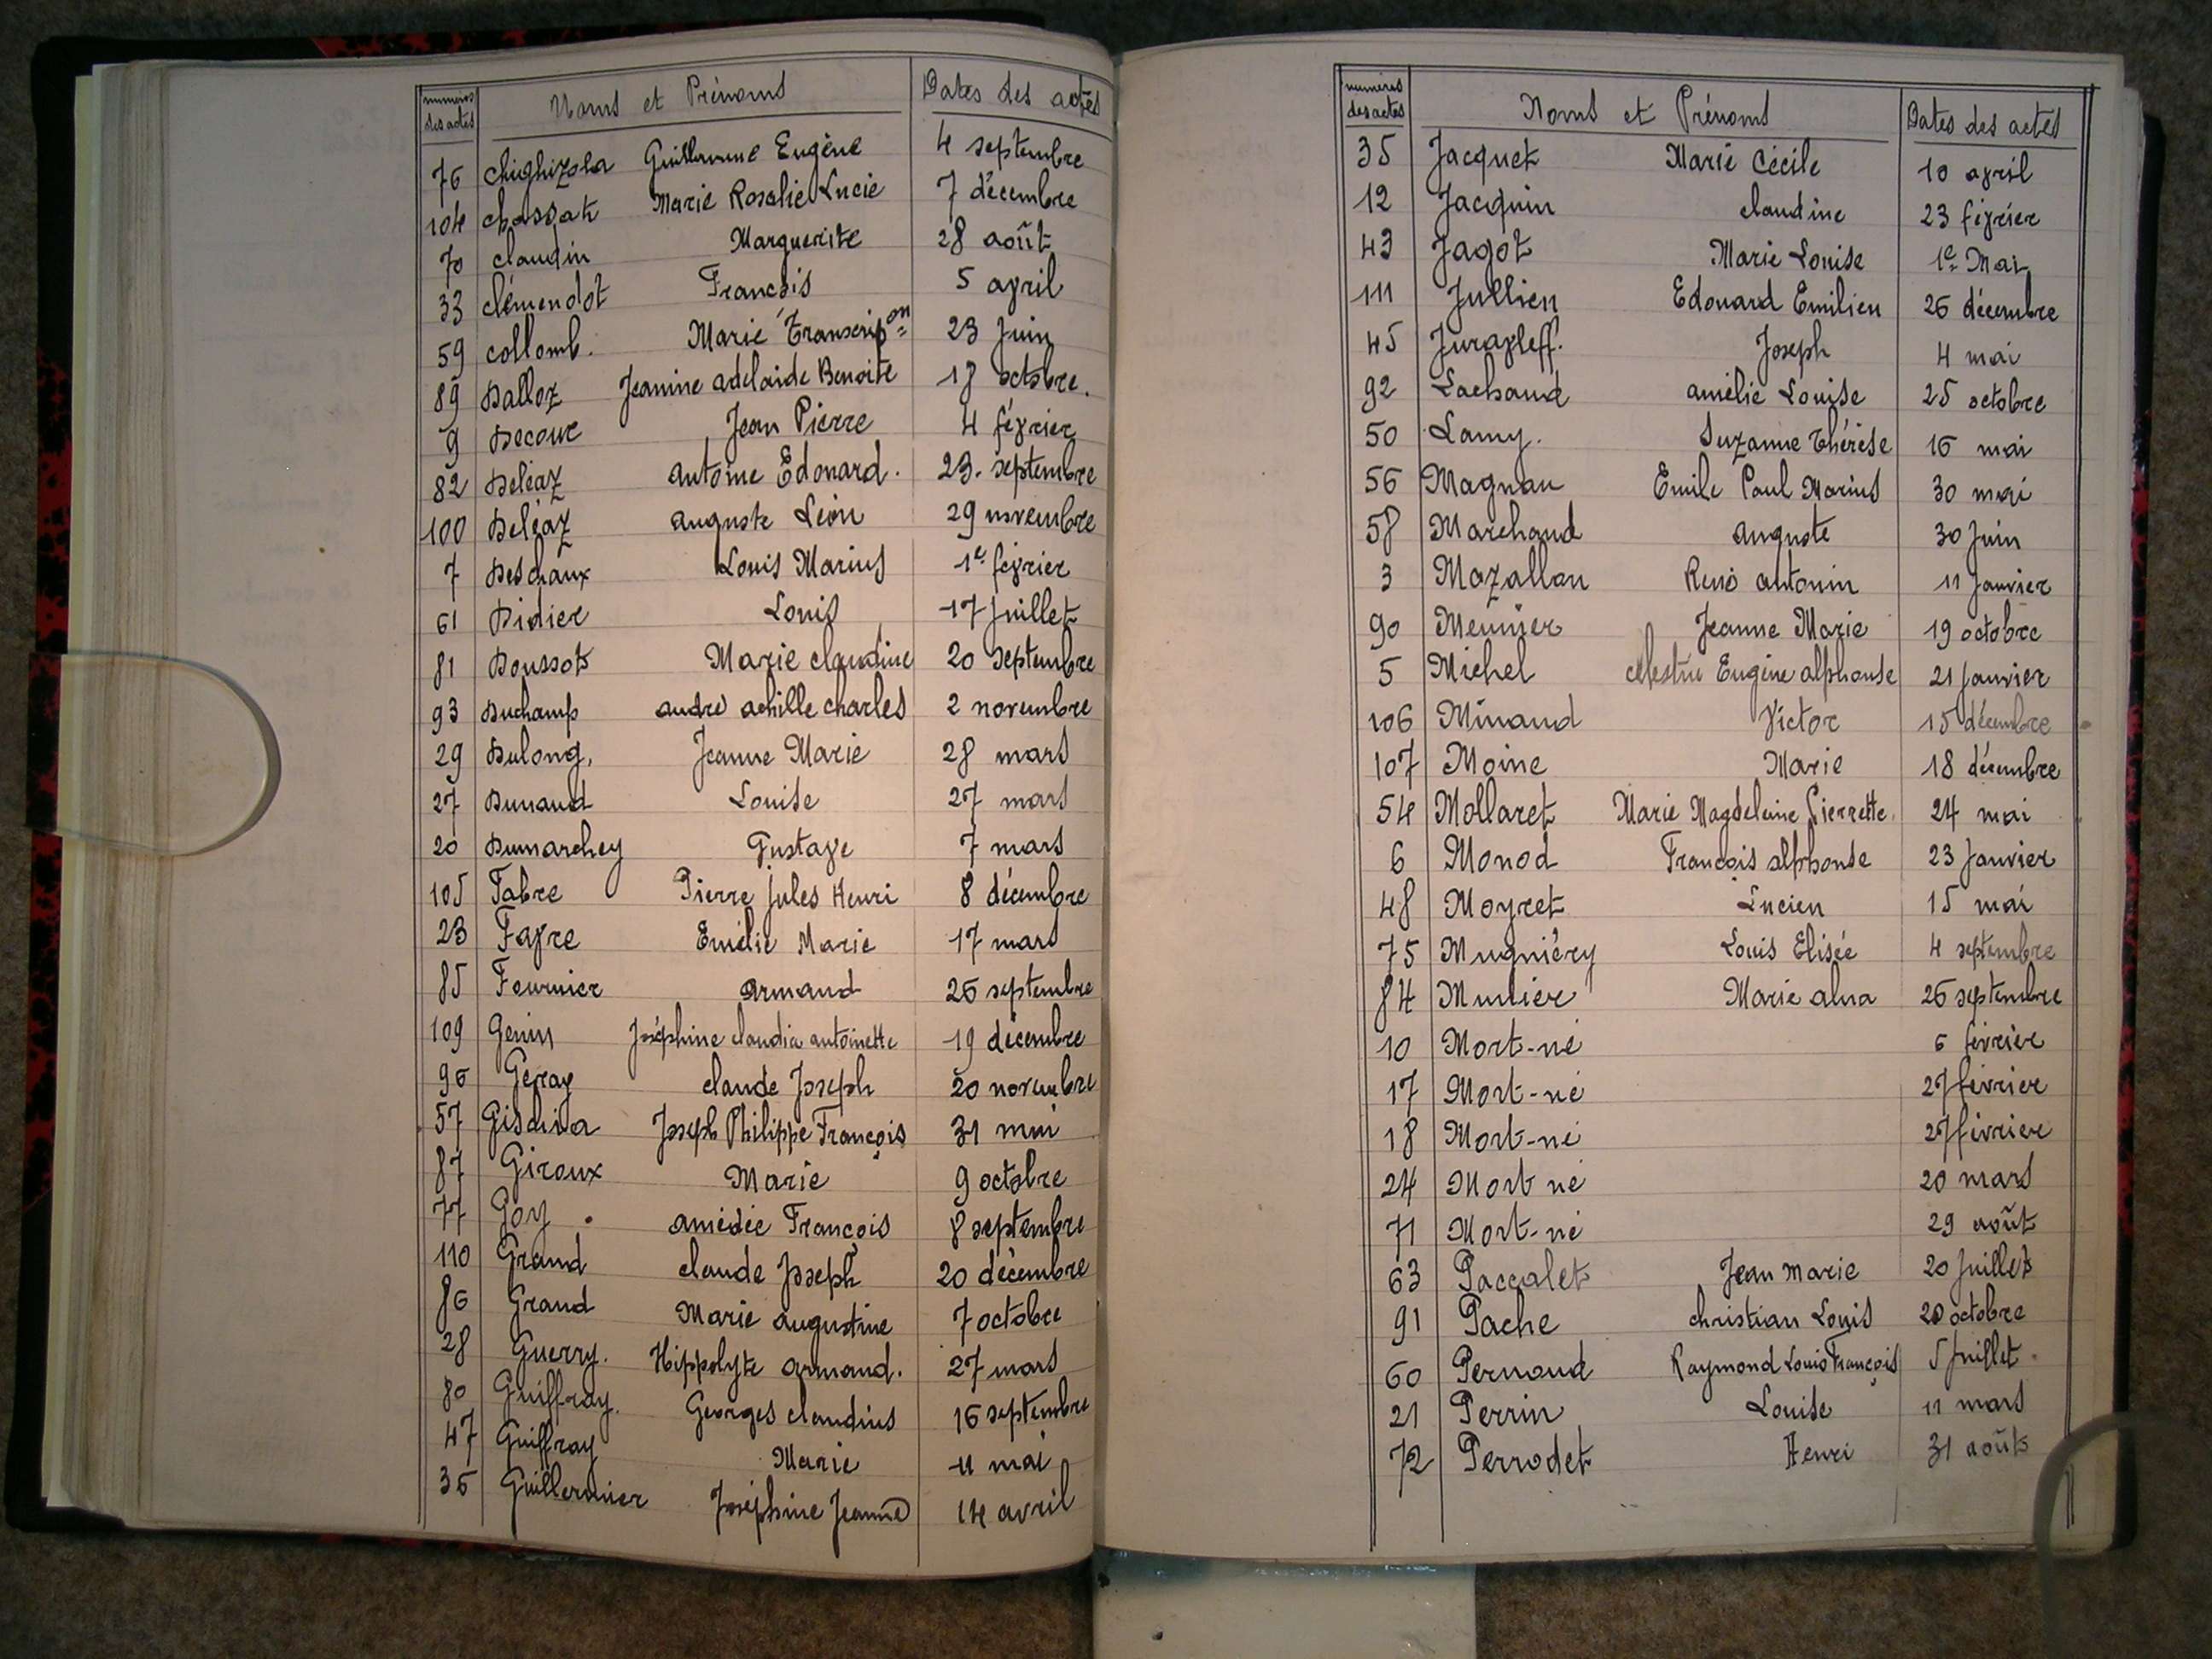 numéros des actes Noms et Prénoms Dates des actes
76 Chighizola Guillaume Eugène 4 septembre
104 Chassat Marie Rosalie Lucie 7 décembre
70 Claudin Marguerite 28 août
33 Clémendot François 5 avril
59 Collomb. Marie Transcripon 23 Juin
89 Dalloz Jeanine adelaide Benoite 18 octobre.
9 Jean Pierre 4 février
82 Deléaz antoine Edouard. 23. septembre
100 Deléaz auguste Léon 29 novembre
7 Deschaux Louis Marius 1er février
61 Didier Louis 17 Juillet
81 Doussot Marie claudine 20 septembre
93 Duchamp andré achille charles 2 novembre
29 Dulong, Jeanne Marie 28 mars
27 Dunand Louise 27 mars
20 Dumarchey Gustave 7 mars
105 Fabre Pierre Jules Henri 8 décembre
23 Favre Emélie Marie 17 mars
85 Fournier armand 26 septembre
109 Genin Joséphine claudia antoinette 19 décembre
96 Géray claude Joseph 20 novembre
57 Joseph Philippe François 31 mai
87 Giroux Marie 9 octobre
77 Goy. amédée François 8 septembre
110 Grand claude Joseph 20 décembre
86 Grand Marie augustine 7 octobre
28 Guerry. Hippolyte armand. 27 mars
80 Guiffray. Georges claudius 16 septembre
47 Guiffray Marie 11 mai
36 Guillermier Joséphine Jeanne 14 avril
numéros des actes Noms et Prénoms Dates des actes
35 Jacquet Marie Cécile 10 avril
12 Jacquin claudine 23 février
43 Jagot Marie Louise 1er Mai
111 Jullien Edouard Emilien 26 décembre
45 Juravleff. Joseph 4 mai
92 Lachaud amélie Louise 25 octobre
50 Lamy. Suzanne Thérèse 16 mai
56 Magnan Emile Paul Marius 30 mai
58 Marchand auguste 30 Juin
3 Mazallon René antonin 11 Janvier
90 Meunier Jeanne Marie 19 octobre
5 Michel célestin Eugène alphonse 21 Janvier
106 Minaud Victor 15 décembre
107 Moine Marie 18 décembre
54 Mollaret Marie Magdeleine Pierrette 24 mai
6 Monod François alphonse 23 Janvier
48 Moyret Lucien 15 mai
75 Mugniéry Louis Elisée 4 septembre
84 Munier Marie alna 26 septembre
10 Mort-né 6 février
17 Mort-né 27 février
18 Mort-né 27 février
24 Mort né 20 mars
71 Mort-né 29 août
63 Paccalet Jean marie 20 Juillet
91 Pache christian Louis 20 octobre
60 Pernoud Raymond Louis François 5 Juillet
21 Perrin Louise 11 mars
72 Perrodet Henri 31 août